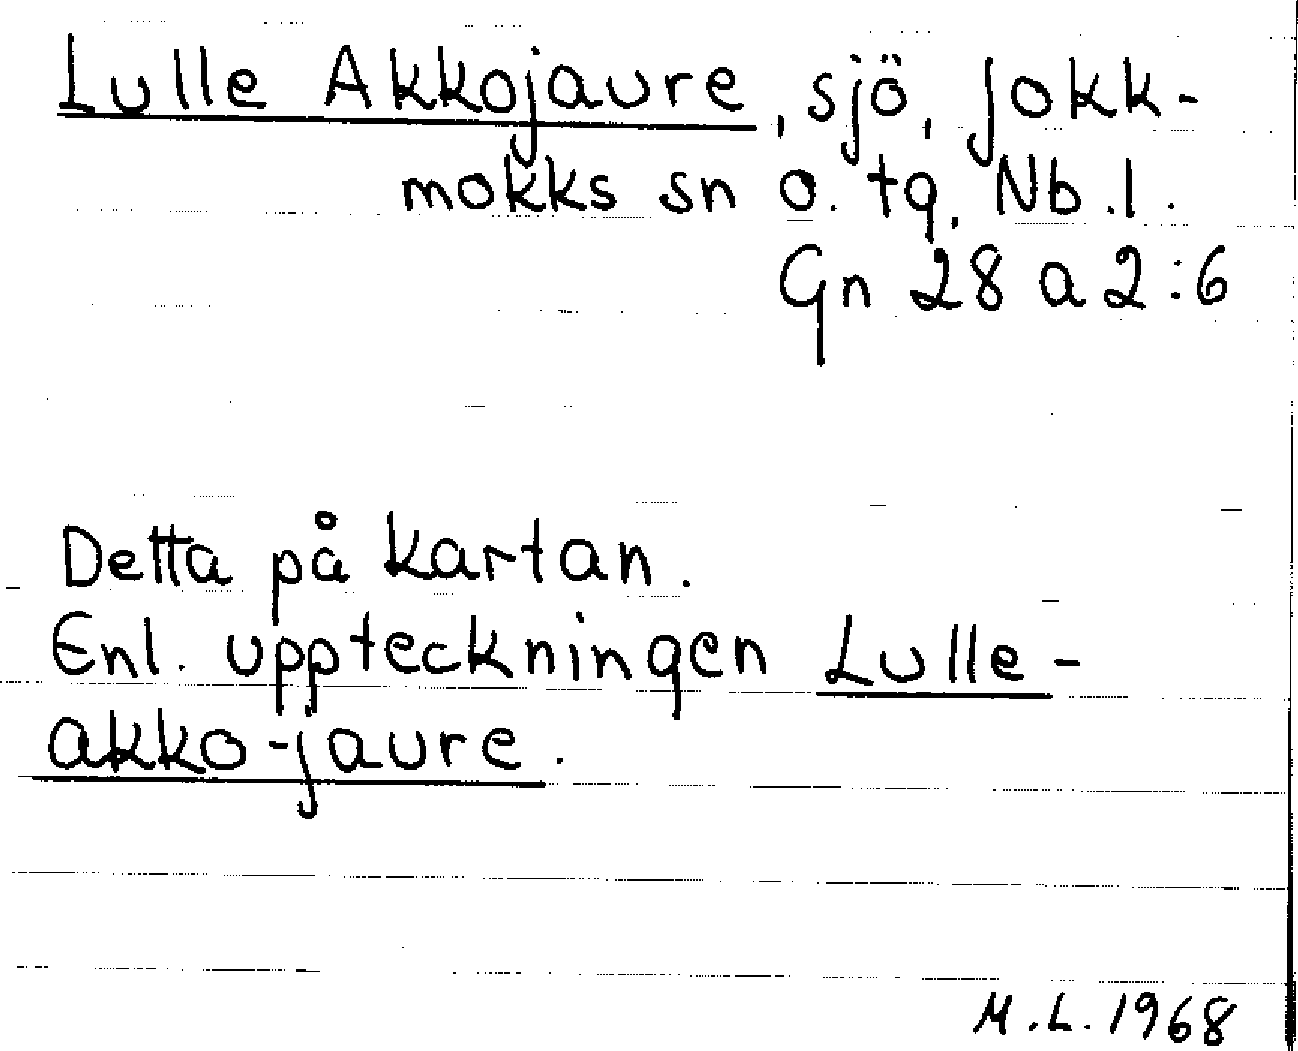 Lulle Akkojaure, sjö, Jokk-
mokks sn o. tg, Nb.l.
Gn 28 a 2:6
Detta på kartan.
Enl. uppteckningen Lulle-
akko-jaure.
M.L. 1968